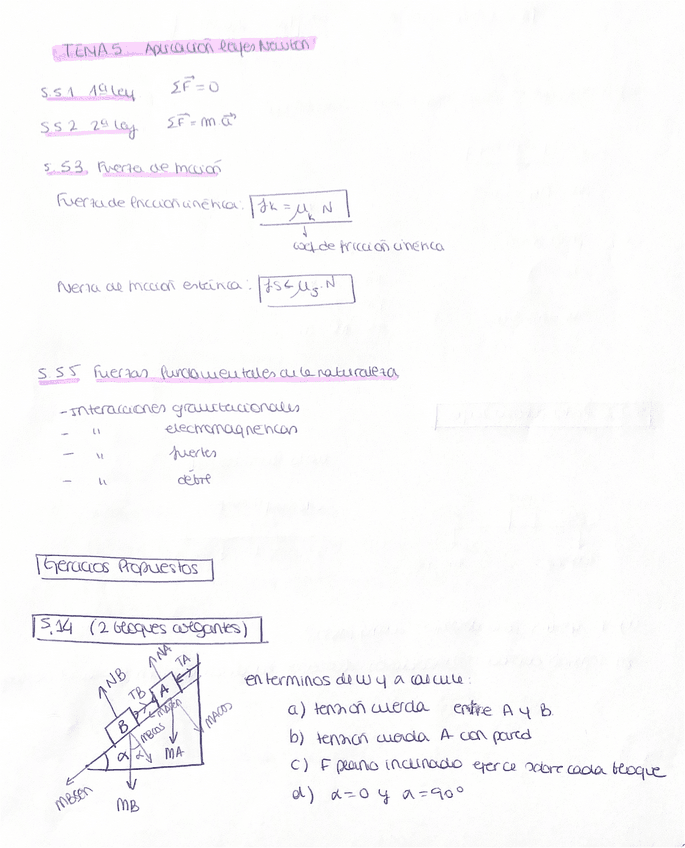 TEMA 5 Aplicación leyes Newton
5.51 1ª ley ΣF⃗ = 0
5.52 2ª ley ΣF⃗ = m a⃗
5.53. Fuerza de fricción
Fuerza de fricción cinética: fk = μk N
coef de fricción cinética
Fuerza de fricción estática: fs ≤ μs · N
5.55 Fuerzas fundamentales de la naturaleza
- Interacciones gravitacionales
- " electromagnéticas
- " fuertes
- " débil
Ejercicios Propuestos
5.14 (2 bloques colgantes)
NA TA
NB TB A
B
α α
MBSEN MBCOS MACOS
MA
MB
en terminos de w y α calcule:
a) tensión cuerda entre A y B
b) tensión cuerda A con pared
c) F plano inclinado ejerce sobre cada bloque
d) α=0 y α=90º